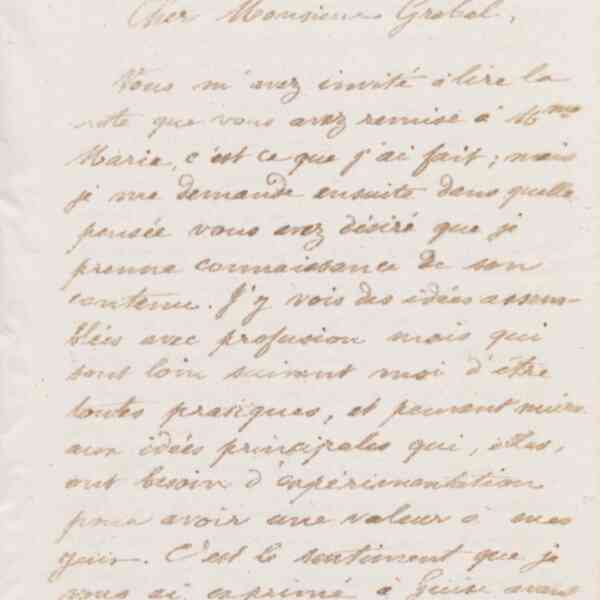 Cher Monsieur Grebel,
Vous m'avez invité à lire la
note que vous avez remise à Mme
Marie, c'est ce que j'ai fait; mais
je me demande ensuite dans quelle
pensée vous avez désiré que je
prenne connaissance de son
contenu. J'y vois des idées assem-
blées avec profusion mais qui
sont loin suivant moi d'être
toutes pratiques, et peuvent nuire
aux idées principales qui, elles,
ont besoin d'expérimentation
pour avoir une valeur à mes
yeux. C'est le sentiment que je
vous ai exprimé à Guise avant